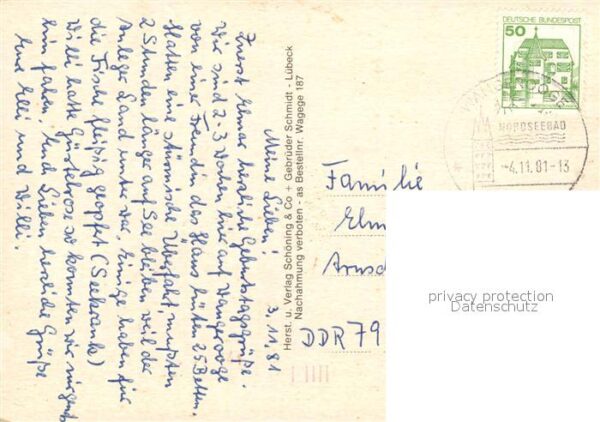 3.11.81
Meine Lieben!
Zuerst Elmar herzliche Geburtstagsgrüße.
Wir sind 2-3 Wochen hier auf Wangerooge
von einer Freundin das Haus hüten 25 Betten.
Hatten eine stürmische Überfahrt, mußten
2 Stunden länger auf See bleiben weil der
Anleger Land unter war. Einige haben für
die Fische fleißig geopfert (Seekrank)
Willi hatte Gürtelrose so konnten wir nirgends
hinfahren. Euch Lieben herzliche Grüße
Eure Leni und Willi.
Herst. u. Verlag Schöning & Co + Gebrüder Schmidt - Lübeck
Nachahmung verboten - as Bestellnr. Wagege 187
DEUTSCHE BUNDESPOST
50
NORDSEEBAD
-4.11.81-13
Familie
Elm
Arnsd
DDR 79
privacy protection
Datenschutz